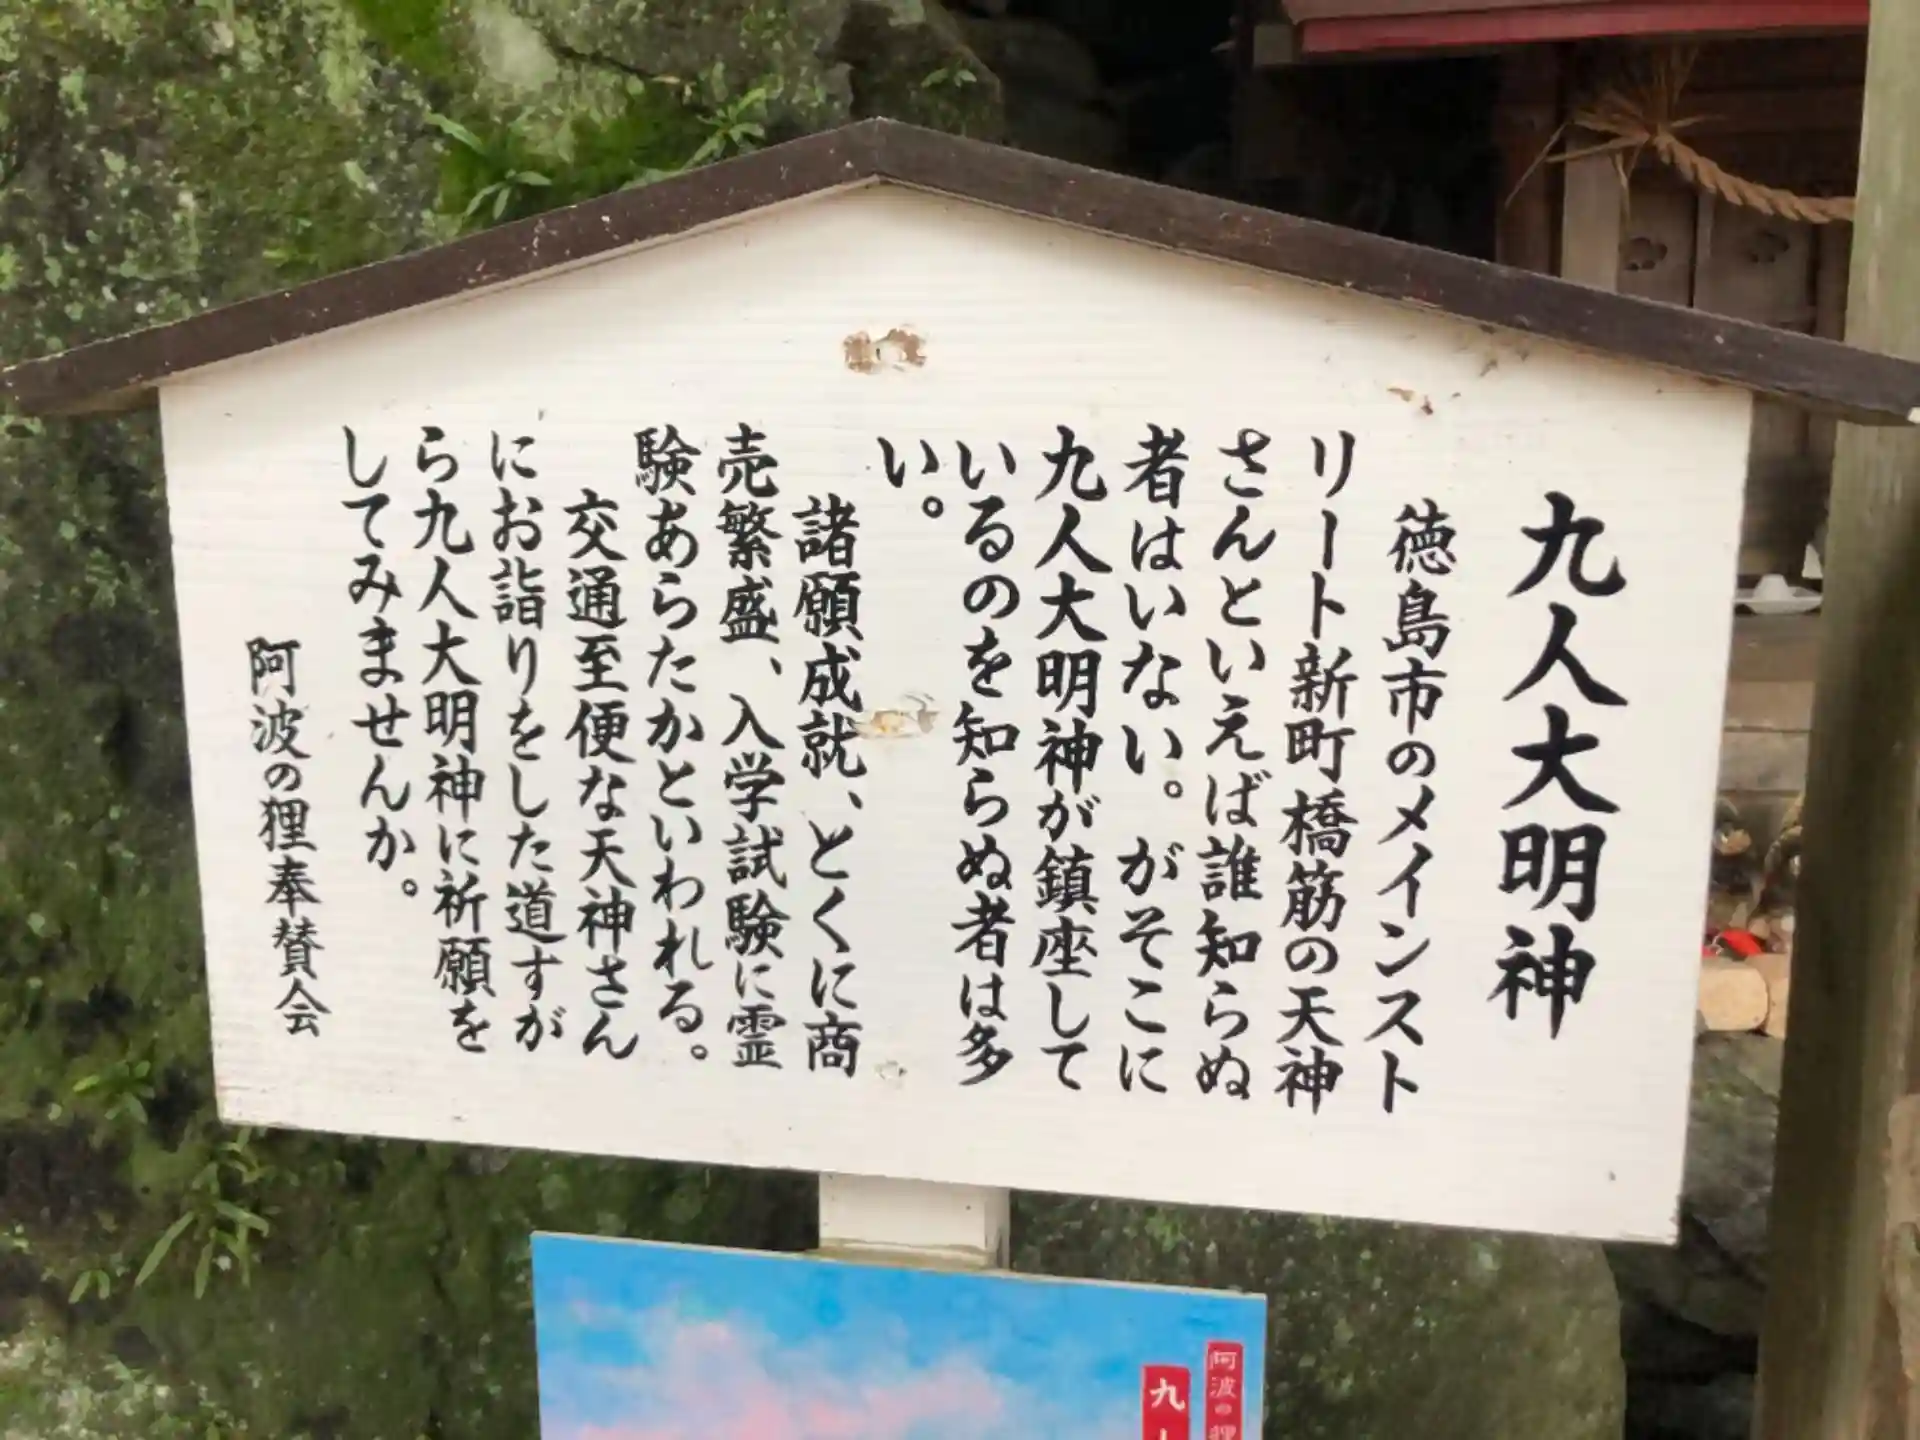 九人大明神
徳島市のメインスト
リート新町橋筋の天神
さんといえば誰知らぬ
者はいない。がそこに
九人大明神が鎮座して
いるのを知らぬ者は多
い。
諸願成就、とくに商
売繁盛、入学試験に霊
験あらたかといわれる。
交通至便な天神さん
にお詣りをした道すが
ら九人大明神に祈願を
してみませんか。
阿波の狸奉賛会
阿波の狸
九